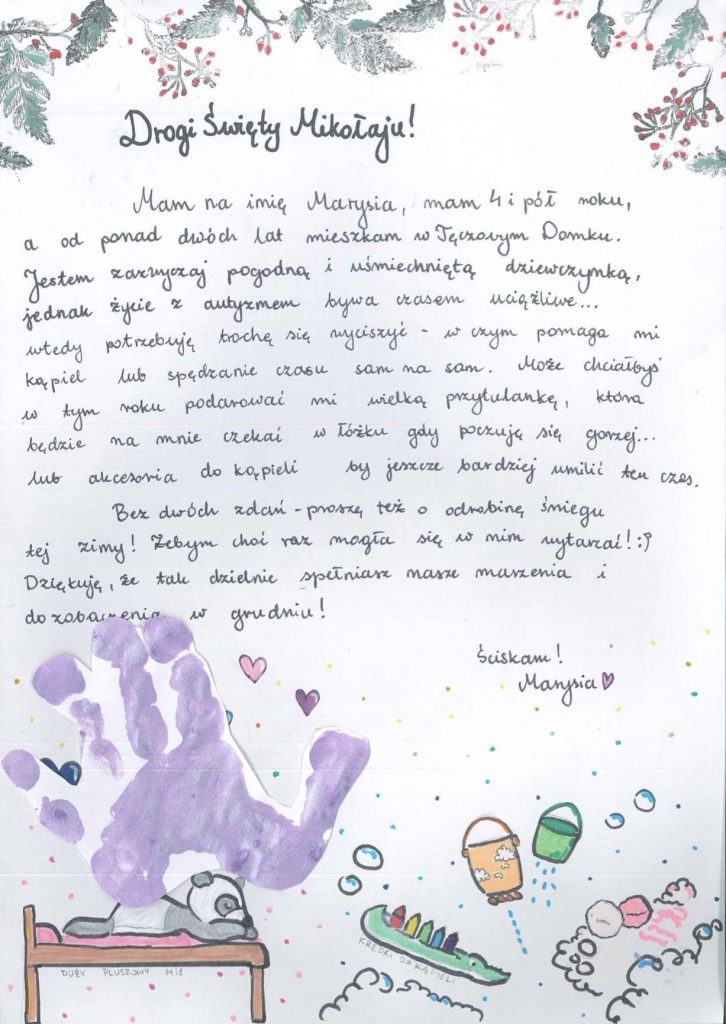 Drogi Święty Mikołaju!
Mam na imię Marysia, mam 4 i pół roku,
a od ponad dwóch lat mieszkam w Tęczowym Domku.
Jestem zazwyczaj pogodną i uśmiechniętą dziewczynką,
jednak życie z autyzmem bywa czasem uciążliwe...
wtedy potrzebuję trochę się wyciszyć - w czym pomaga mi
kąpiel lub spędzanie czasu sam na sam. Może chciałbyś
w tym roku podarować mi wielką przytulankę, która
będzie na mnie czekać w łóżku gdy poczuję się gorzej...
lub akcesoria do kąpieli by jeszcze bardziej umilić ten czas.
Bez dwóch zdań - proszę też o odrobinę śniegu
tej zimy! Żebym choć raz mogła się w nim wytarzać! :)
Dziękuję, że tak dzielnie spełniasz nasze marzenia i
do zobaczenia w grudniu!
Ściskam!
Marysia
KREDKI DO KĄPIELI
DUŻY PLUSZOWY MIŚ